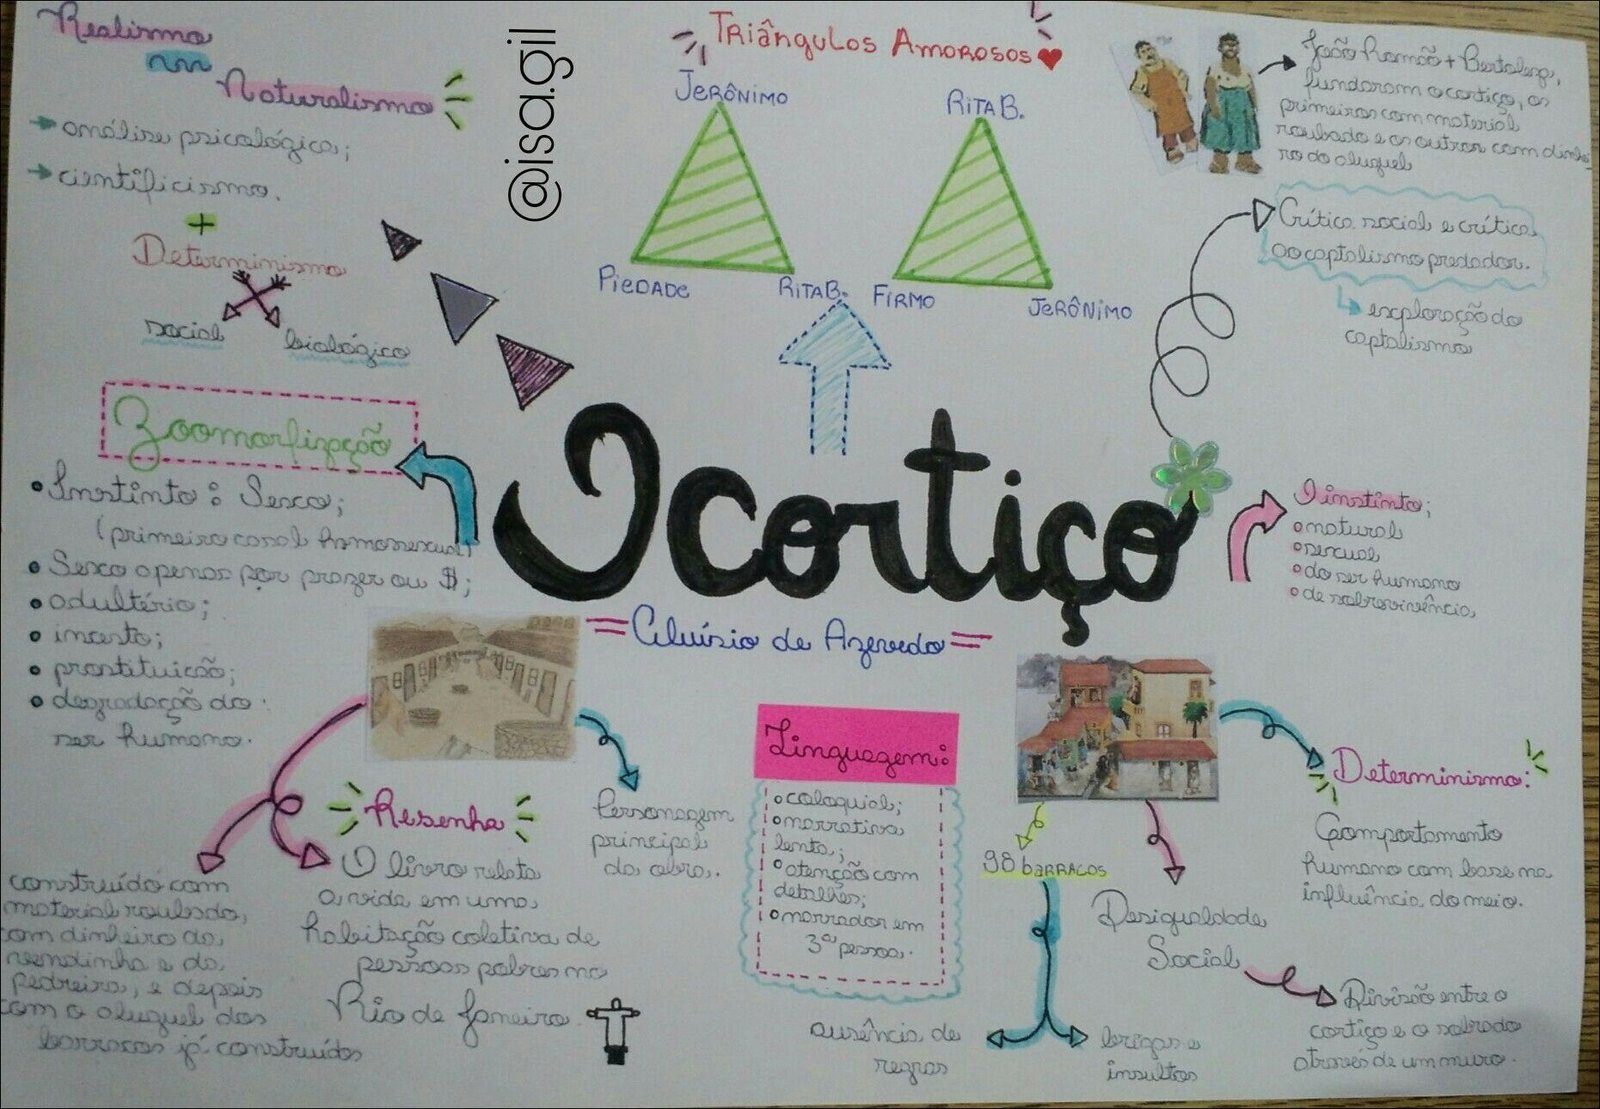 Realismo
Naturalismo
análise psicológica;
cientificismo.
+
Determinismo
social
biológico
@isa.gil
Triângulos Amorosos
Jerônimo
Piedade
Rita B.
Rita B.
Firmo
Jerônimo
João Romão + Bertoleza,
fundaram o cortiço, os
primeiros com material
roubado e os outros com dinhei
ro do aluguel
Crítica social e crítica
ao captalismo predador.
exploração do
captalismo
Zoomorfização
Instinto: Sexo;
(primeiro casal homossexual)
Sexo apenas por prazer ou $;
adultério;
incesto;
prostituição;
degradação do
ser humano.
O cortiço
= Aluísio de Azevedo =
O instinto;
natural
sexual
do ser humano
de sobrevivência
construído com
material roubado,
com dinheiro da
vendinha e da
pedreira, e depois
com o aluguel dos
barracos já construídos
Resenha
O livro relata
a vida em uma
habitação coletiva de
pessoas pobres no
Rio de Janeiro.
Personagem
principal
da obra.
Linguagem:
coloquial;
narrativa
lenta;
atenção com
detalhes;
narrador em
3ª pessoa.
98 barracos
ausência de
regras
brigas e
insultos
Desigualdade
Social
Divisão entre o
cortiço e o sobrado
através de um muro.
Determinismo:
Comportamento
humano com base na
influência do meio.